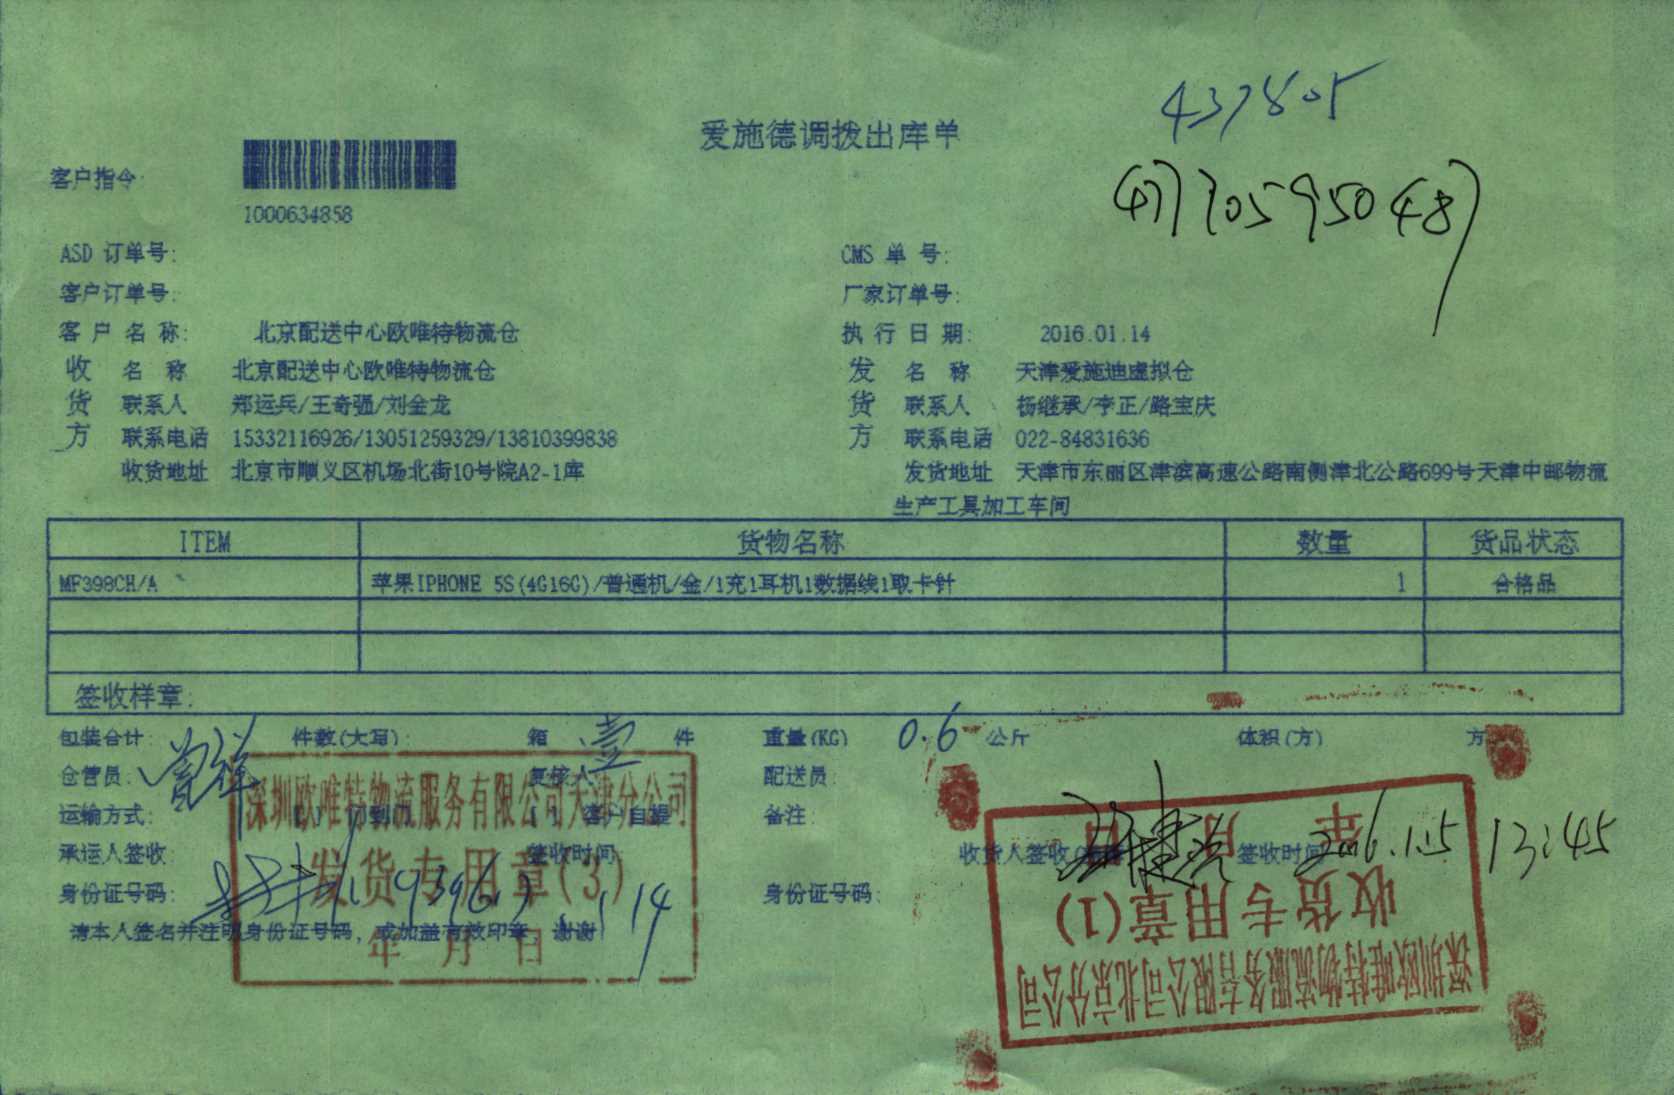 437805
爱施德调拨出库单
客户指令:
1000634858
ASD 订单号: CMS 单 号:
客户订单号: 厂家订单号:
客 户 名 称: 北京配送中心欧唯特物流仓 执 行 日 期: 2016.01.14
收 名 称 北京配送中心欧唯特物流仓 发 名 称 天津爱施迪虚拟仓
货 联系人 郑运兵/王奇强/刘金龙 货 联系人 杨继承/李正/路宝庆
方 联系电话 15332116926/13051259329/13810399838 方 联系电话 022-84831636
收货地址 北京市顺义区机场北街10号院A2-1库 发货地址 天津市东丽区津滨高速公路南侧津北公路699号天津中邮物流
生产工具加工车间
ITEM 货物名称 数量 货品状态
MF398CH/A 苹果IPHONE 5S(4G16G)/普通机/金/1充1耳机1数据线1取卡针 1 合格品
签收样章:
包装合计: 件数(大写): 箱 壹 件 重量(KG) 0.6 公斤 体积(方) 方
仓管员: 复核人 配送员:
运输方式: 客户自提 备注:
承运人签收 签收时间 收货人签收 签收时间 2016.1.15 13:45
身份证号码: 1.14 身份证号码:
请本人签名并注明身份证号码, 或加盖有效印章, 谢谢
深圳欧唯特物流服务有限公司天津分公司
发货专用章(3)
年 月 日
深圳欧唯特物流服务有限公司北京分公司
收货专用章(1)
年 月 日